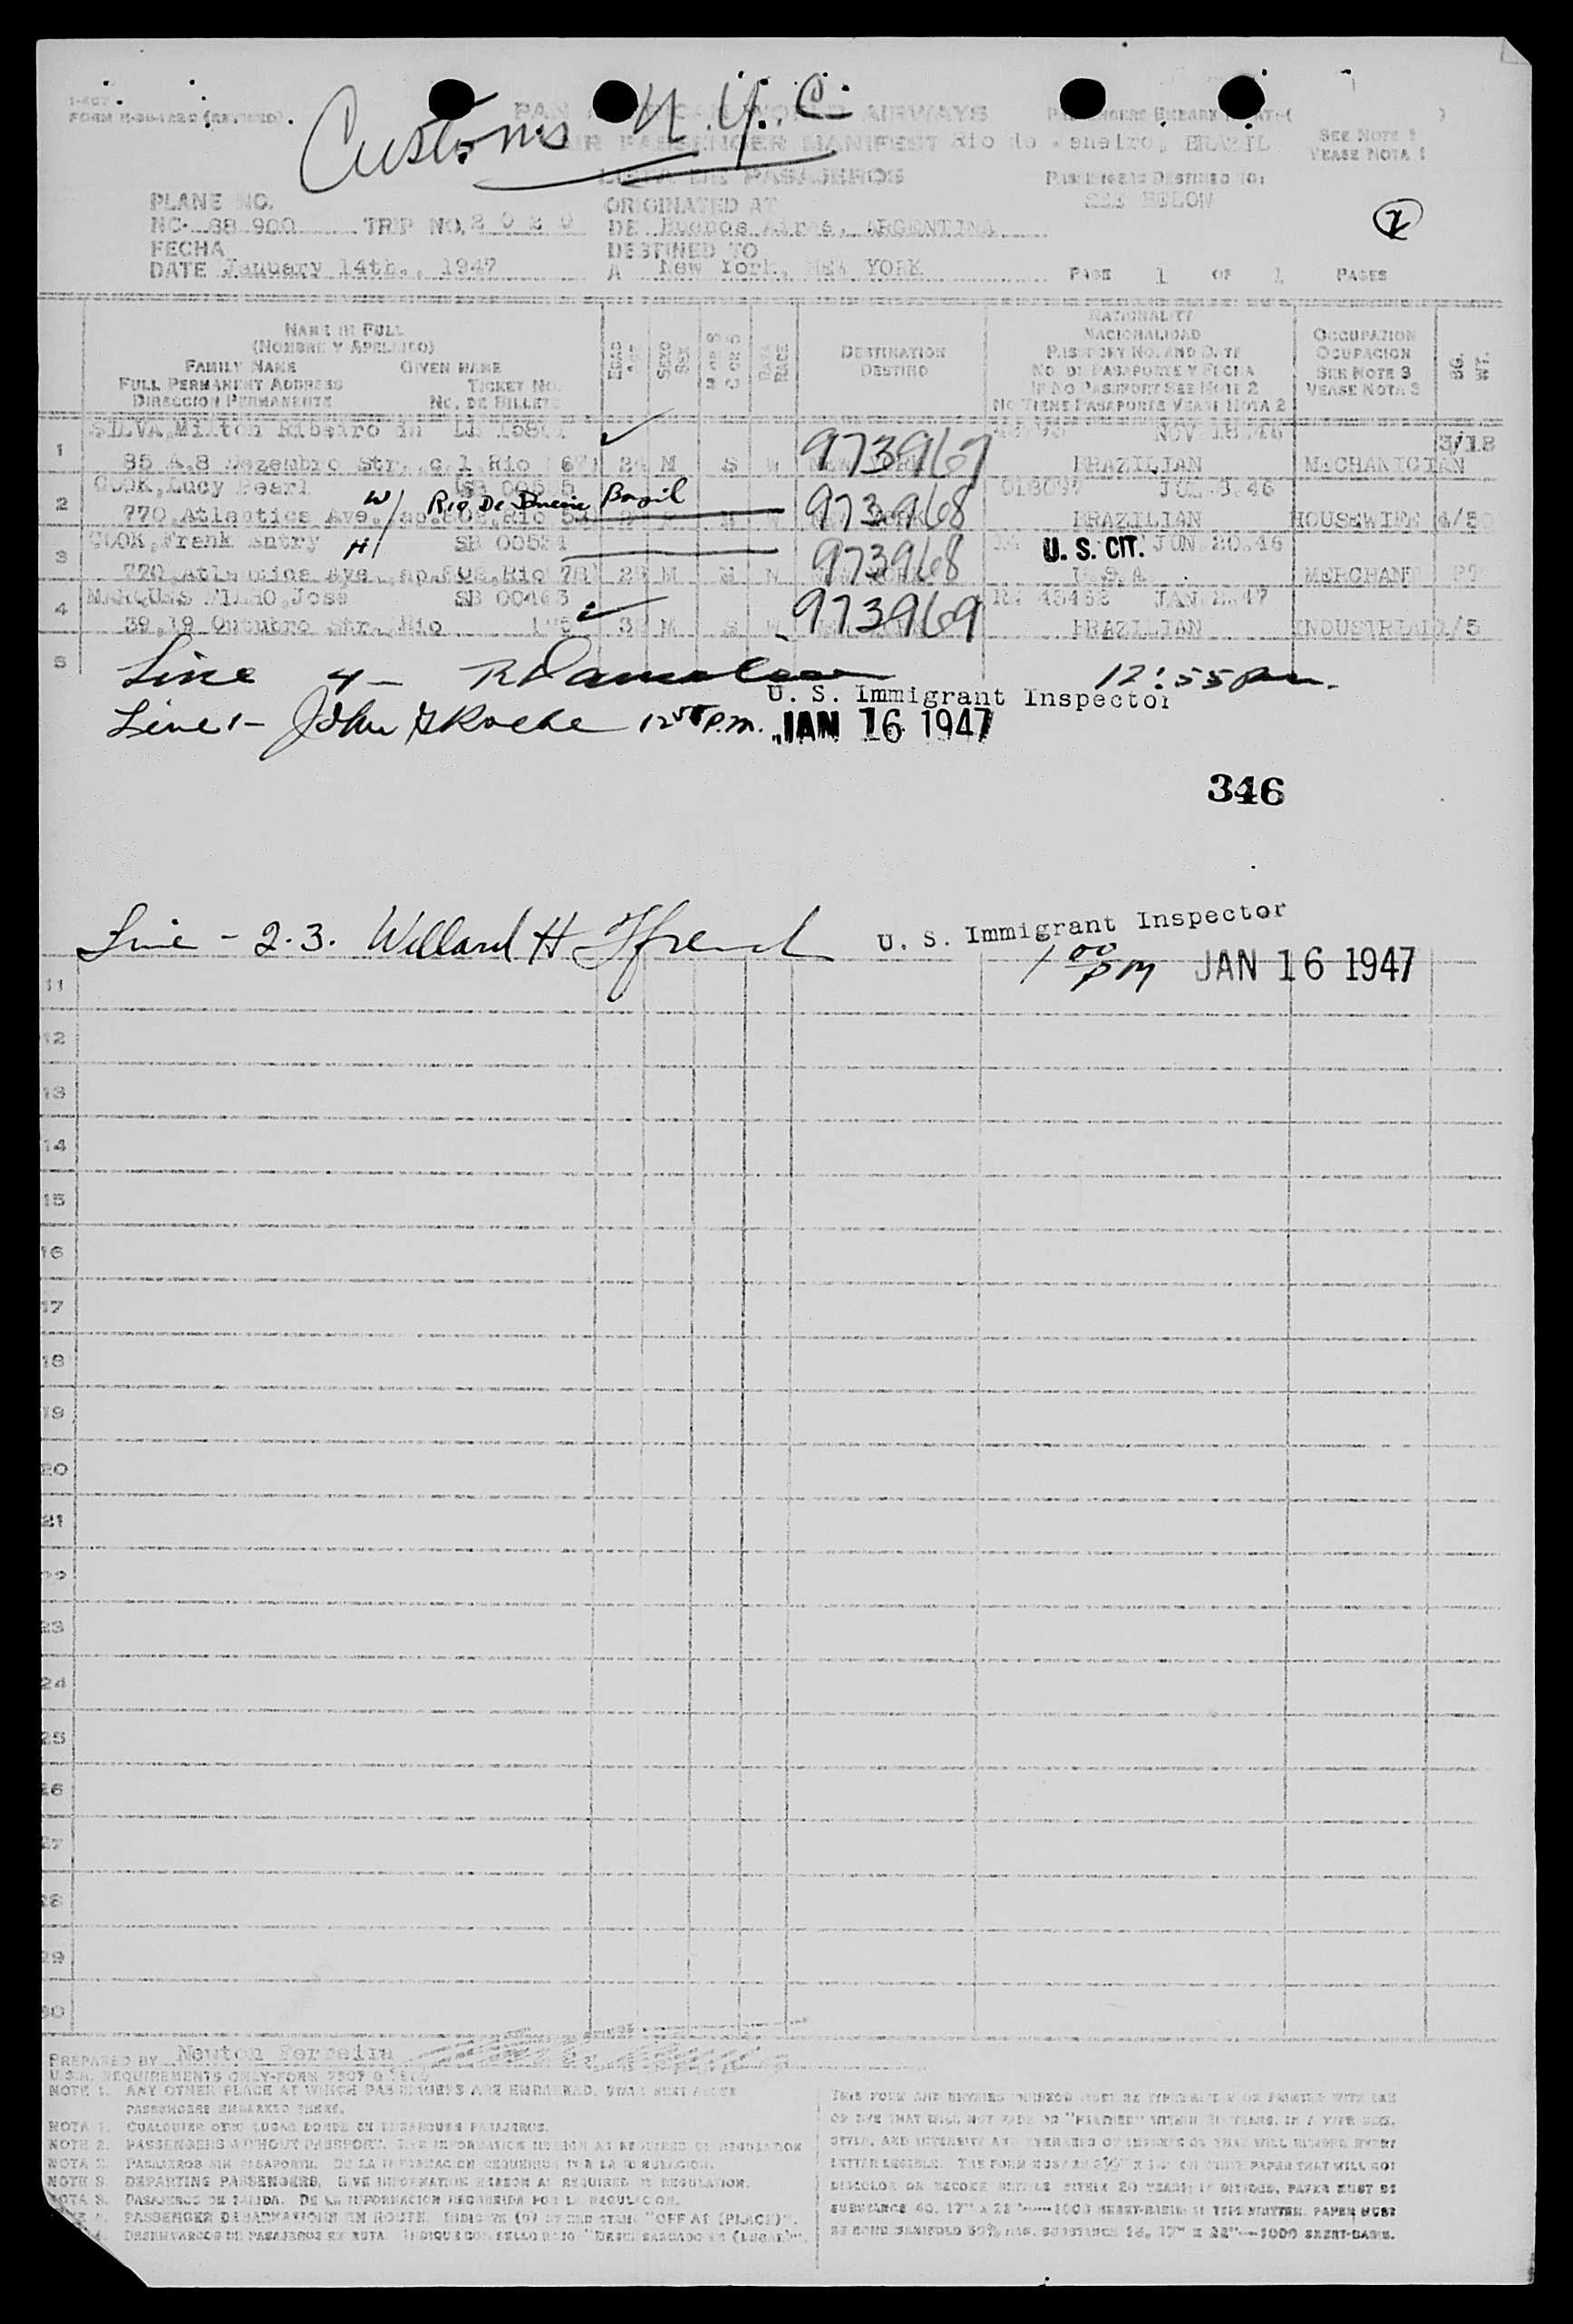 Customs N.Y.C.
I-467
PAN AMERICAN WORLD AIRWAYS
AIR PASSENGER MANIFEST Rio de Janeiro, BRAZIL
SEE NOTE 1
VEASE NOTA 1
LISTA DE PASAJEROS
PASSENGERS DESTINED TO:
SEE BELOW
PLANE NO.
NC- 88 900 TRIP NO. 2020
ORIGINATED AT
DE Buenos Aires, ARGENTINA
FECHA
DATE January 14th., 1947
DESTINED TO
A New York, NEW YORK
PAGE 1 OF 1 PAGES
NAME IN FULL
(NOMBRE Y APELLIDO)
FAMILY NAME GIVEN NAME
FULL PERMANENT ADDRESS TICKET NO.
DIRECCION PERMANENTE NO. DE BILLETE
EDAD AGE
SEXO SEX
RAZA RACE
DESTINATION
DESTINO
NATIONALITY
NACIONALIDAD
PASSPORT NO. AND DATE
NO. DE PASAPORTE Y FECHA
IF NO PASSPORT SEE NOTE 2
NO TIENE PASAPORTE VEASE NOTA 2
OCCUPATION
OCUPACION
SEE NOTE 3
VEASE NOTA 3
1 SILVA, Milton Ribeiro da NOV.18.46 3/18
85 A, 8 Dezembro Str., c 1, Rio M S W 973967 BRAZILIAN MECHANICIAN
2 COOK, Lucy Pearl W/ Rio De Janeiro Brazil
770, Atlantica Ave., Rio 973968 BRAZILIAN HOUSEWIFE
3 COOK, Frank H/ SB 00524 U. S. CIT. JUN.20.46
770, Atlantica Ave., Rio M 973968 U.S.A. MERCHANT
4 MARQUES FILHO, Jose SB 00463 JAN 47
39, 19 Outubro Str., Rio M S W 973969 BRAZILIAN INDUSTRIAL
5
Line 4- 12:55 pm.
U. S. Immigrant Inspector
Line 1- John Roche 12 55 P.M. JAN 16 1947
346
Line - 2.3. Willard H Ffrench U. S. Immigrant Inspector
1 00 PM JAN 16 1947
11
12
13
14
15
16
17
18
19
20
21
22
23
24
25
26
27
28
29
30
PREPARED BY Newton Ferreira
NOTE 1. ANY OTHER PLACE AT WHICH PASSENGERS ARE EMBARKED, MUST
PASSENGERS EMBARKED THERE.
NOTA 1. CUALQUIER OTRO LUGAR DONDE SE EMBARQUEN PASAJEROS.
NOTE 2. PASSENGERS WITHOUT PASSPORT. GIVE INFORMATION HEREON AS REQUIRED BY REGULATION
NOTA 2. PASAJEROS SIN PASAPORTE. DE LA INFORMACION REQUERIDA POR LA REGULACION.
NOTE 3. DEPARTING PASSENGERS. GIVE INFORMATION HEREON AS REQUIRED BY REGULATION.
NOTA 3. PASAJEROS DE SALIDA. DE LA INFORMACION REQUERIDA POR LA REGULACION.
PASSENGER DEBARKATIONS EN ROUTE. "OFF AT (PLACE)".
DESEMBARCOS DE PASAJEROS EN RUTA. INDIQUE CON SELLO ROJO "DESEMBARCADO EN (LUGAR)".
THIS FORM AND ENTRIES HEREON MUST BE TYPEWRITTEN OR PRINTED WITH INK
OR DYE THAT WILL NOT FADE OR "FEATHER" WITHIN 20 YEARS, IN A TYPE SIZE,
STYLE, AND INTENSITY THAT WILL RENDER EVERY
LETTER LEGIBLE. PAPER THAT WILL NOT
DISCOLOR OR BECOME BRITTLE WITHIN 20 YEARS. PAPER MUST BE
SUBSTANCE 40, 17" x 28"—1000 SHEET-BASIS: IF TYPEWRITTEN, PAPER MUST
BE BOND MANIFOLD 50% RAG, SUBSTANCE 16, 17" x 22"—1000 SHEET-BASIS.